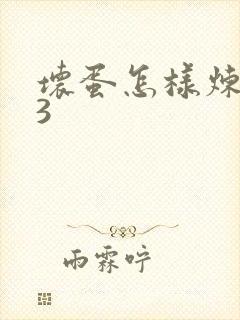 壞蛋怎樣煉
3
雨霖咛